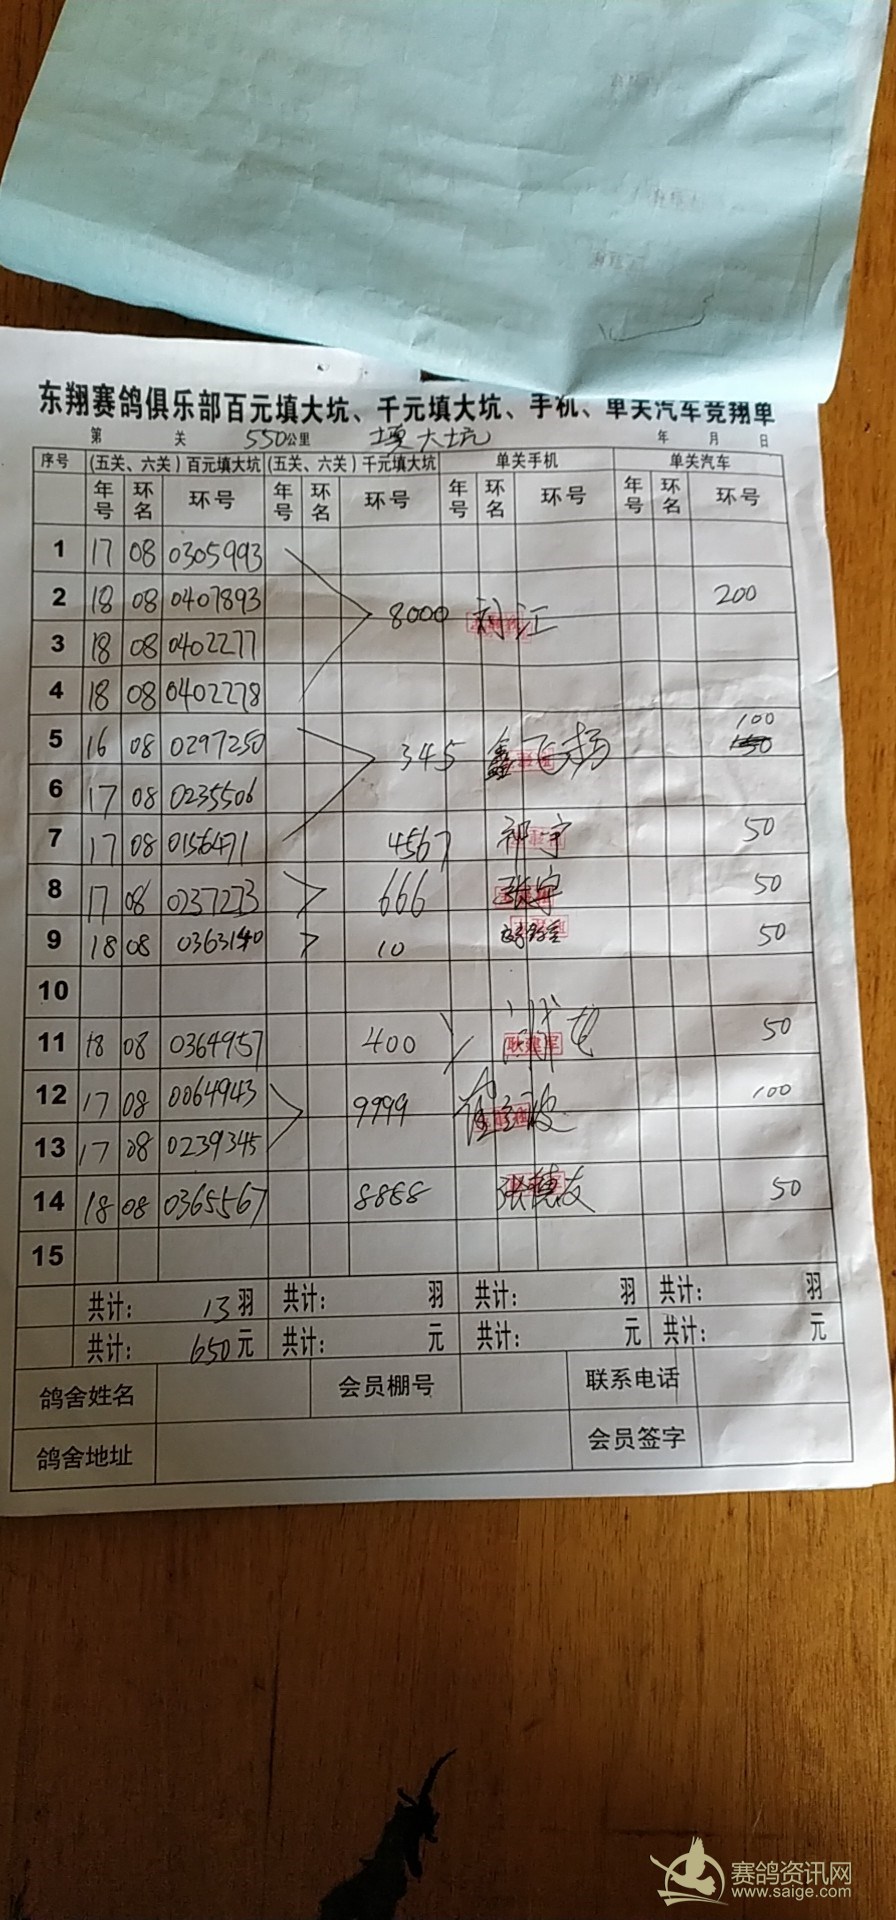 东翔赛鸽俱乐部百元填大坑、千元填大坑、手机、单关汽车竞翔单
第 关 550公里 填大坑 年 月 日
序号 (五关、六关)百元填大坑 (五关、六关)千元填大坑 单关手机 单关汽车
年号 环名 环号 年号 环名 环号 年号 环名 环号 年号 环名 环号
1 17 08 0305993
2 18 08 0407893 8000 刘江 200
3 18 08 0402277
4 18 08 0402278
5 16 08 0297250 345 鑫飞扬 100
6 17 08 0235506
7 17 08 0156471 4567 祁宇 50
8 17 08 0237223 666 张宇 50
9 18 08 0363140 10 50
10
11 18 08 0364957 400 耿建军 50
12 17 08 0064943 9999 100
13 17 08 0239345
14 18 08 0365567 8888 张德友 50
15
共计: 13羽 共计: 羽 共计: 羽 共计: 羽
共计: 650元 共计: 元 共计: 元 共计: 元
鸽舍姓名 会员棚号 联系电话
鸽舍地址 会员签字
赛鸽资讯网
www.saige.com